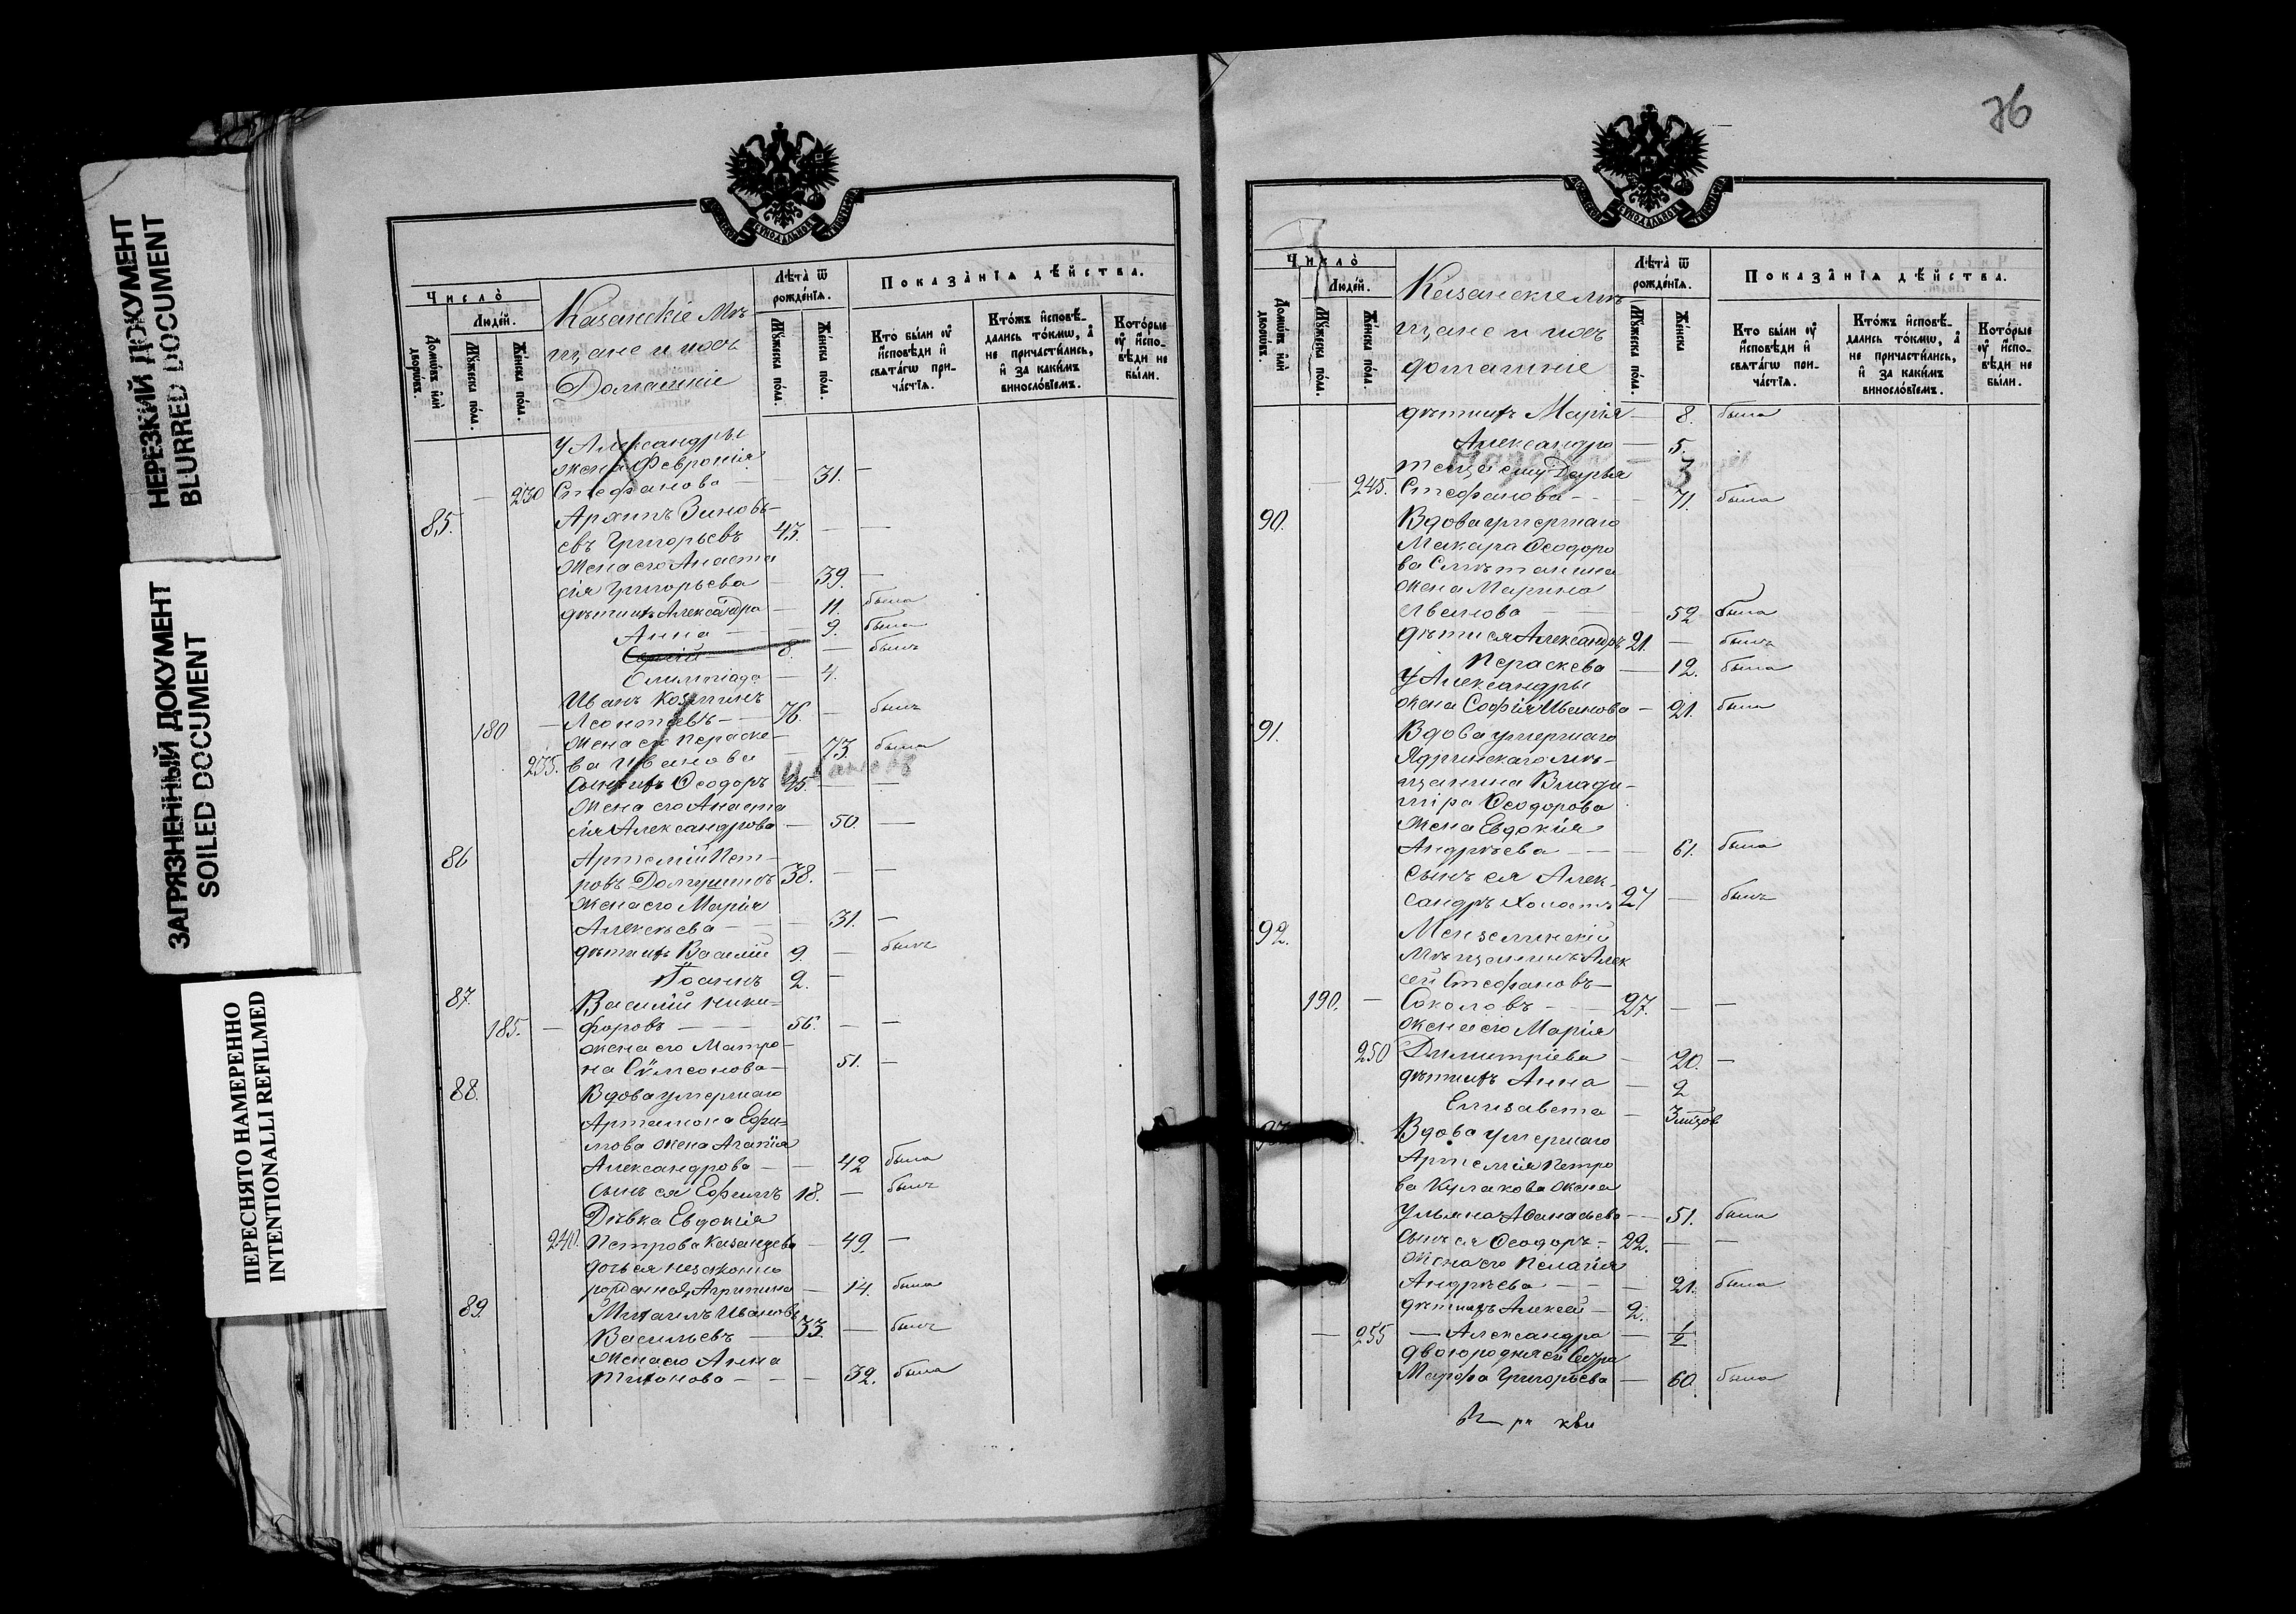 НЕРЕЗКИЙ ДОКУМЕНТ
BLURRED DOCUMENT
ЗАГРЯЗНЕННЫЙ ДОКУМЕНТ
SOILED DOCUMENT
ПЕРЕСНЯТО НАМЕРЕННО
INTENTIONALLI REFILMED
Число̀
Людей.
Домѡвъ или дворѡвъ.
Мꙋжеска пола.
Женска пола.
Казанскіе Мѣ
щане и ихъ
Домашніе
Лѣта ѿ рожденїѧ.
Мꙋжеска пола.
Женска пола.
Показанїѧ дѣйства.
Кто были оу исповѣди и свѧтагѡ причастїѧ.
Ктожъ исповѣдались токмѡ, а не причастились, и за какимъ винословїемъ.
Которые оу исповѣди не были.
у Александры
жена Феврония
— 230 Стефанова — — 31. —
85. Архипъ Зиновь-
евъ Григорьевъ 43. — —
Жена его Анаста
сія Григорьева — 39. —
дѣти ихъ Александра — 11. была
Анна — — 9. была
Сергій — 8. — былъ
Олимпіада — 4.
Иванъ Козминъ
180 — Леонтьевъ — 76. — былъ
Жена ея Параске-
235. ва Иванова — 73 была
Сынъ ихъ Ѳеодоръ 25. — —
Жена его Анаста
сія Александрова — 50. —
86 Артемій Пет-
ровъ Долгушинъ 38. — —
Жена его Марія
Алексѣева — — 31. —
дѣти ихъ Василій 9. — былъ
Іоаннъ 2. —
87. Василій Ники-
185. — форовъ — — 56. — —
жена его Матро-
на Сѵмеонова — 51. —
88. Вдова умершаго
Артамона Ефи-
мова жена Агапія
Александрова — — 42 была
Сынъ ея Ефимъ 18. — былъ
Дѣвка Евдокія
240. Петрова Казанцева — 49. —
дочь ея незаконно
рожденная Агрипина — 14. была
89. Михаилъ Ивановъ
Васильевъ — 33. — былъ
Жена его Анна
Тихонова — — — 32. была
76
Число̀
Людей.
Домѡвъ или дворѡвъ.
Мꙋжеска пола.
Женска пола.
Казанскіе мѣ
щане и ихъ
домашніе
Лѣта ѿ рожденїѧ.
Мꙋжеска пола.
Женска
Показанїѧ дѣйства.
Кто были оу исповѣди и свѧтагѡ причастїѧ.
Ктожъ исповѣдались токмѡ, а не причастились, и за какимъ винословїемъ.
Которые оу исповѣди не были.
дѣти ихъ Марія — 8. была
Александра — 5.
3
теща ему Дарья
— 245. Стефанова — — 71. была
90. Вдова умершаго
Макара Ѳеодоро
ва Смѣтанина
жена Марина
Иванова — — 52 была
дѣти ея Александръ 21. — былъ
Параскева — 12. была
у Александры
жена Софія Иванова — 21. была
91. Вдова умершаго
Ядринскаго мѣ-
щанина Влади-
міра Ѳеодорова
жена Евдокія
Андрѣева — — 61. была
сынъ ея Алек-
сандръ холостъ 27 — былъ
92. Мензелинскій
Мѣщанинъ Алек
сей Стефановъ —
190. — Соколовъ — 27. — —
жена его Марія
250 Димитріева — 20. —
дѣти ихъ Анна — 2
Елизавета —
Вдова умершаго
Артемія Петро
ва Кулакова жена
Ульяна Аѳанасьева — 51. была
Сынъ ея Ѳеодоръ — 22. — —
Жена его Пелагія
Андрѣева — — — 21. была
дѣти ихъ Алексей — 2.
— 255 — Александра — ½
двоюродная ей сестра
Марфа Григорьева — 60 была